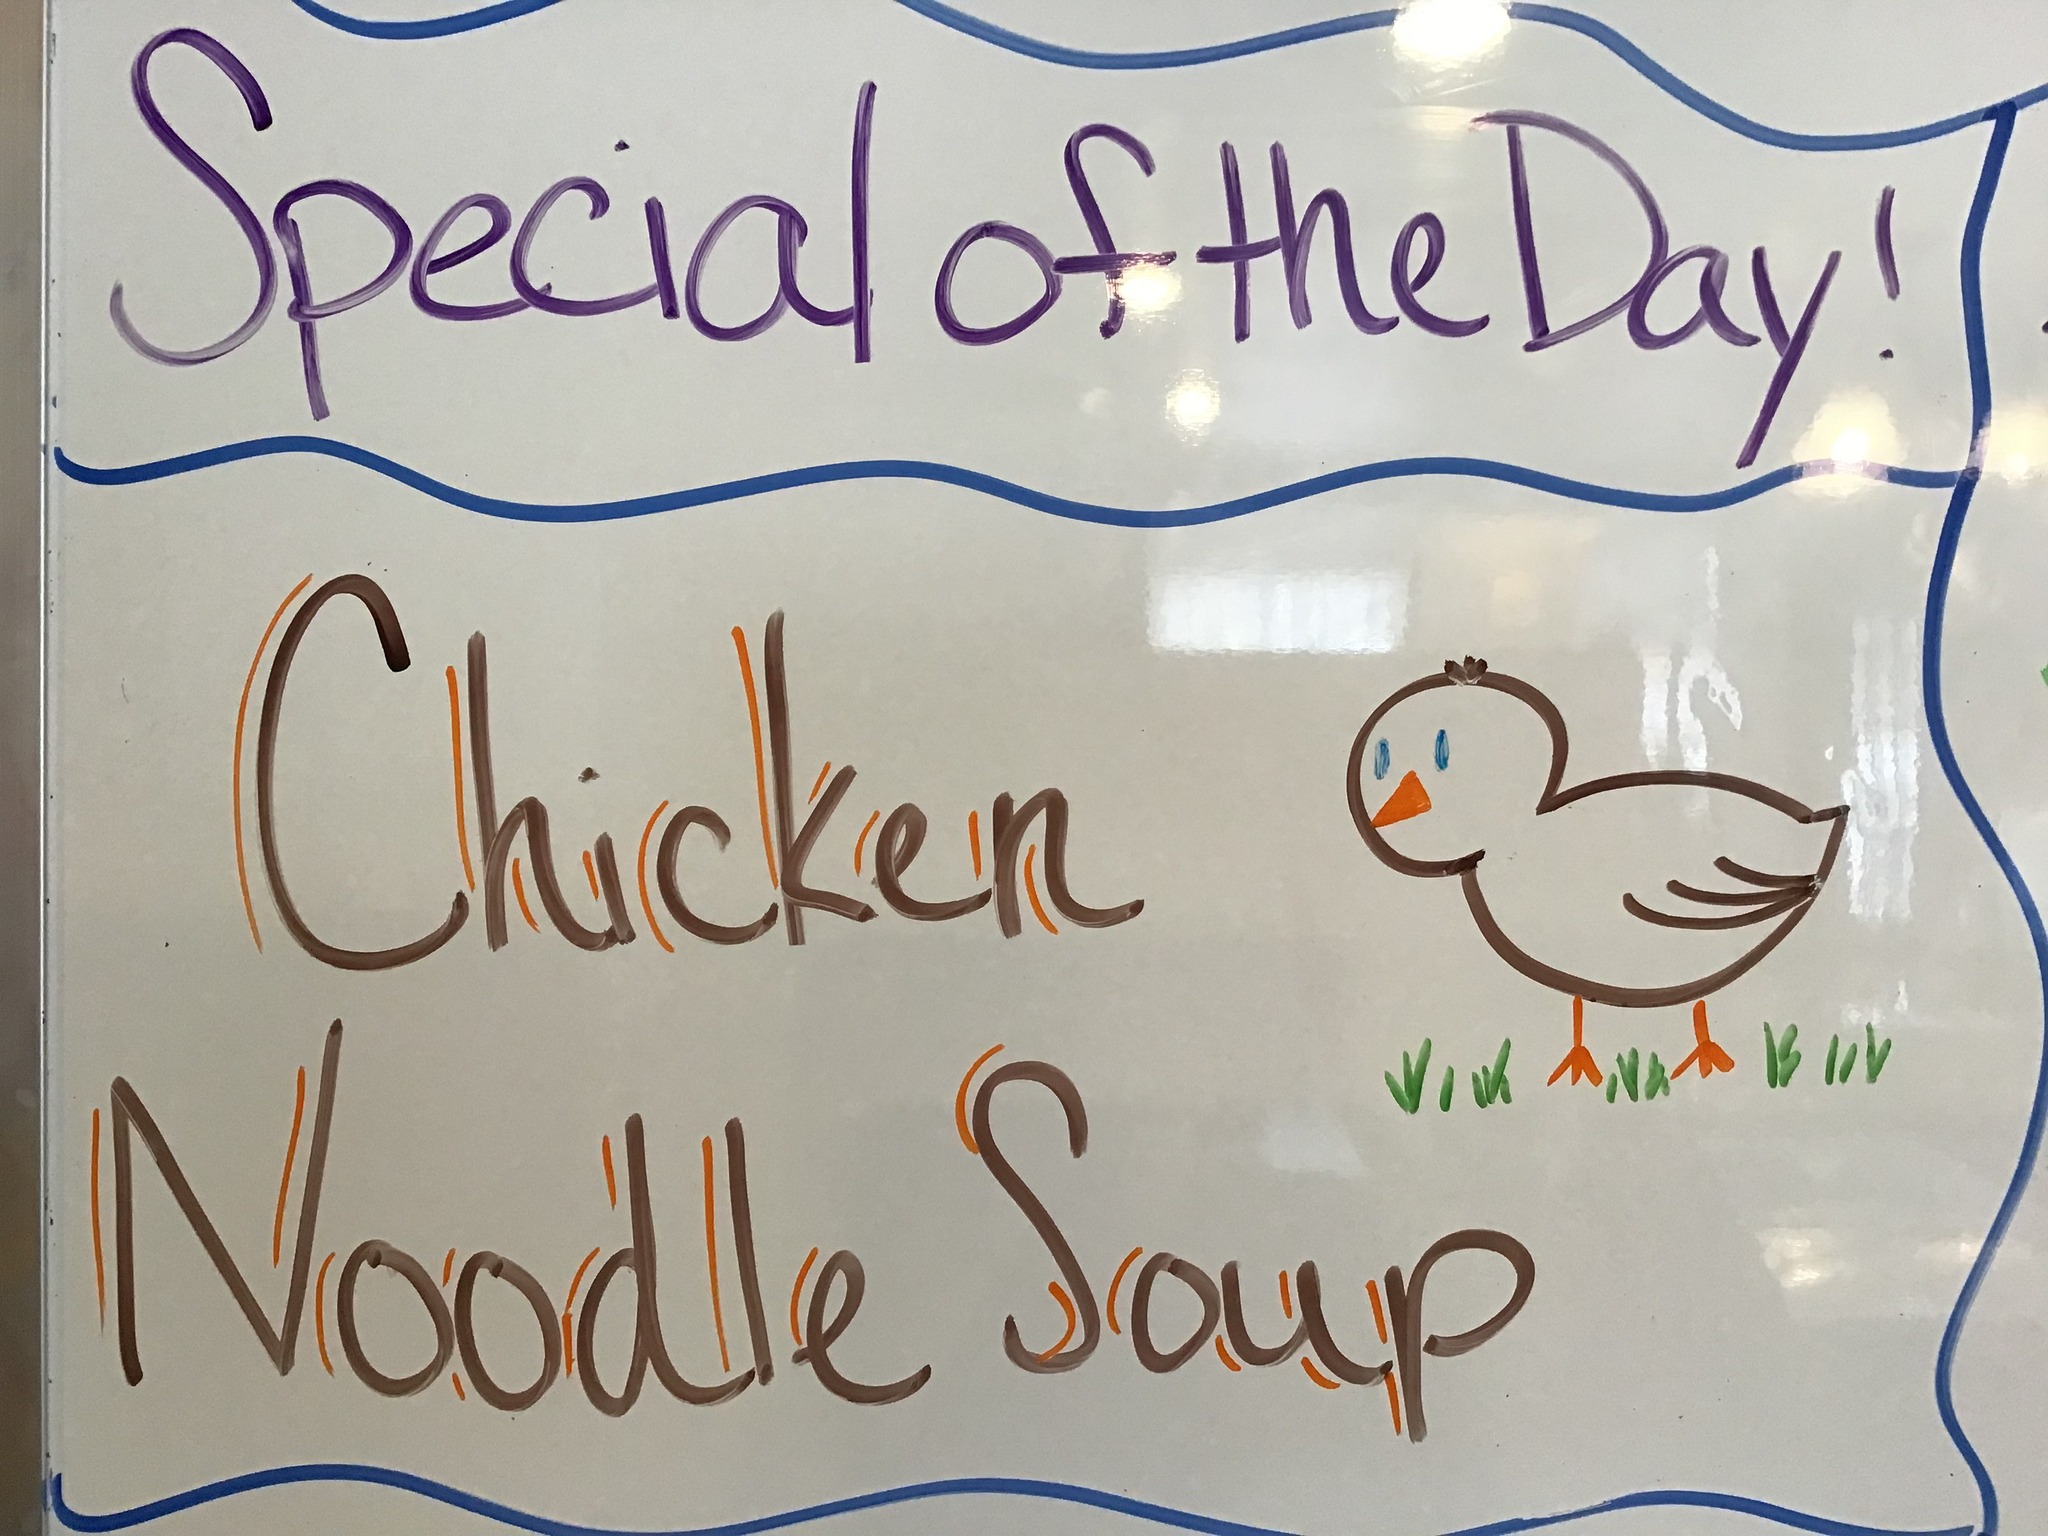 Special of the Day!
Chicken
Noodle Soup